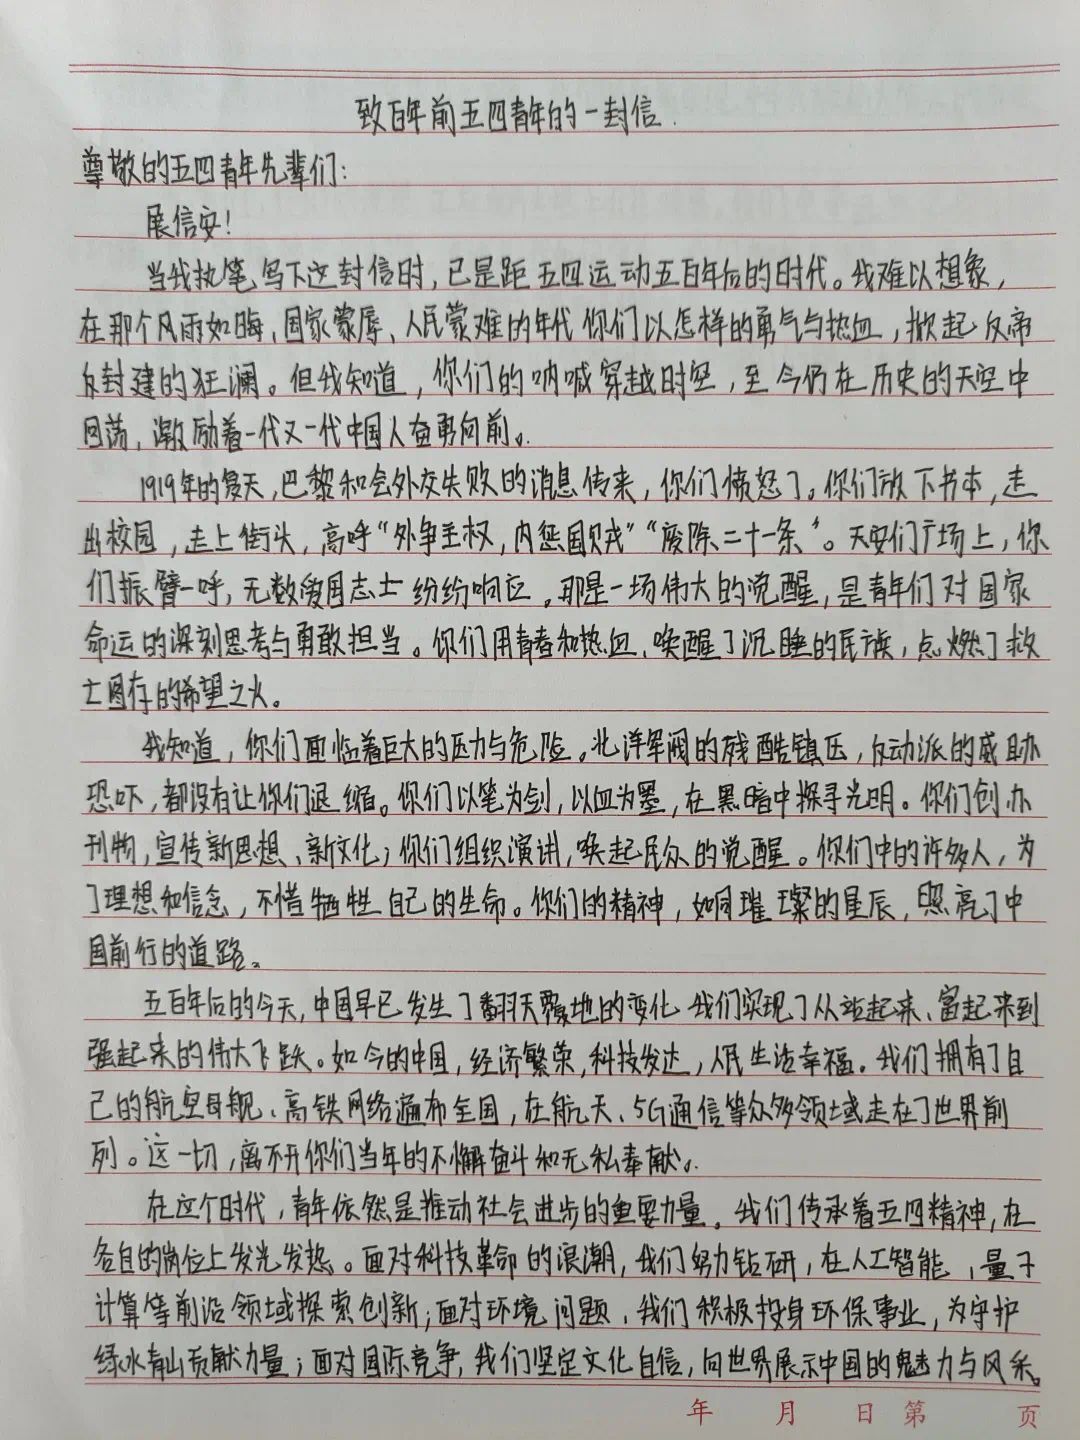 致百年前五四青年的一封信.
尊敬的五四青年先辈们:
展信安!
当我执笔写下这封信时,已是距五四运动五百年后的时代。我难以想象,
在那个风雨如晦、国家蒙辱、人民蒙难的年代你们以怎样的勇气与热血,掀起反帝
反封建的狂澜。但我知道,你们的呐喊穿越时空,至今仍在历史的天空中
回荡,激励着一代又一代中国人奋勇向前。
1919年的夏天,巴黎和会外交失败的消息传来,你们愤怒了。你们放下书本,走
出校园,走上街头,高呼“外争主权,内惩国贼”“废除二十一条”。天安们广场上,你
们振臂一呼,无数爱国志士纷纷响应。那是一场伟大的觉醒,是青年们对国家
命运的深刻思考与勇敢担当。你们用青春和热血、唤醒了沉睡的民族,点燃了救
亡图存的希望之火。
我知道,你们面临着巨大的压力与危险。北洋军阀的残酷镇压,反动派的威胁
恐吓,都没有让你们退缩。你们以笔为剑,以血为墨,在黑暗中探寻光明。你们创办
刊物,宣传新思想、新文化;你们组织演讲,唤起民众的觉醒。你们中的许多人,为
了理想和信念,不惜牺牲自己的生命。你们的精神,如同璀璨的星辰,照亮了中
国前行的道路。
五百年后的今天,中国早已发生了翻天覆地的变化 我们实现了从站起来、富起来到
强起来的伟大飞跃。如今的中国,经济繁荣,科技发达,人民生活幸福。我们拥有了自
己的航空母舰、高铁网络遍布全国,在航天、5G通信等众多领域走在了世界前
列。这一切,离不开你们当年的不懈奋斗和无私奉献。
在这个时代,青年依然是推动社会进步的重要力量。我们传承着五四精神,在
各自的岗位上发光发热。面对科技革命的浪潮,我们努力钻研,在人工智能,量子
计算等前沿领域探索创新;面对环境问题、我们积极投身环保事业,为守护
绿水青山贡献力量;面对国际竞争,我们坚定文化自信,向世界展示中国的魅力与风采。
年 月 日 第 页